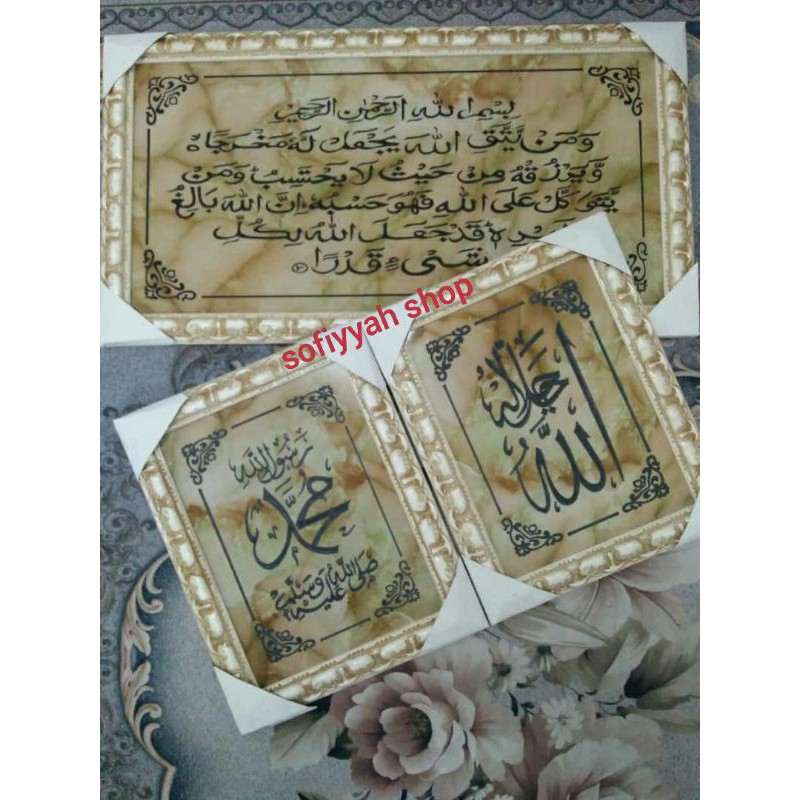 بِسْمِ اللهِ الرَّحْمٰنِ الرَّحِيْمِ
وَمَنْ يَّتَّقِ اللهَ يَجْعَلْ لَهُ مَخْرَجًا ه
وَّيَرْزُقْهُ مِنْ حَيْثُ لَا يَحْتَسِبُ وَمَنْ
يَّتَوَكَّلْ عَلَى اللهِ فَهُوَ حَسْبُهُ اِنَّ اللهَ بَالِغُ
قَدْ جَعَلَ اللهُ لِكُلِّ
شَيْءٍ قَدْرًا
sofiyyah shop
جل جلاله
الله
رَسُولُ الله
محمد
صَلَّى اللهُ
عَلَيْهِ وَسَلَّم